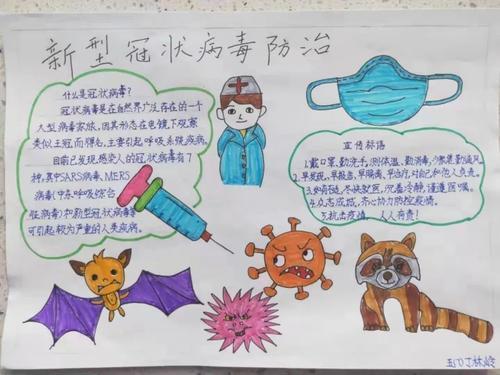 新型冠状病毒防治
什么是冠状病毒?
冠状病毒是在自然界广泛存在的一个
大型病毒家族,因其形态在电镜下观察
类似王冠而得名,主要引起呼吸系统疾病。
目前已发现感染人的冠状病毒有7
种,其中SARS病毒、MERS
病毒(中东呼吸综合
征病毒)和新型冠状病毒等
可引起较为严重的人类疾病。
宣传标语
1.戴口罩,勤洗手,测体温,勤消毒,少聚集,勤通风
2.早发现,早报告,早隔离,早治疗,对自己和他人负责。
3.如有疑,尽快就医,沉着冷静,谨遵医嘱。
4.众志成城,齐心协力防控疫情。
5.抗击疫情,人人有责!
林岭